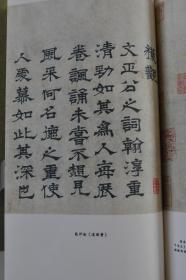 獲觀
文正公之詞翰淳重
清勁如其為人每展
卷諷誦未嘗不想見
風采何名德之重使
人愛慕如此其深也